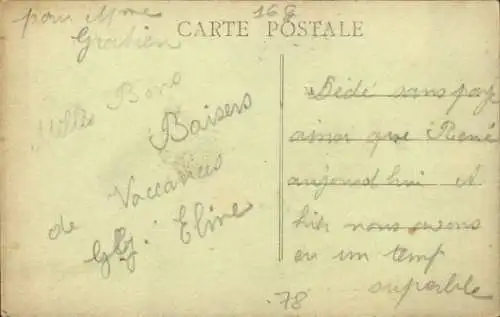 pour Mme
Gratien
168
CARTE POSTALE
Milles Bons
Baisers
de Vaccances
Eline
Dédé sans pay
ainsi que René
aujourd hui
hier nous avons
eu un temp
superbe
78